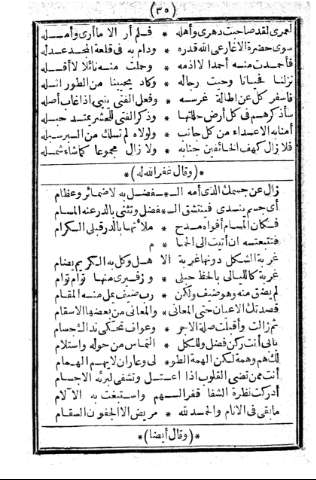 (٣٥)
لعمرى لقد صاحبت دهرى وأهله * فلم أر الا ما أرى وأمله
سوى حضرة الاغا رعى الله قدره * ودام به فى قلعة المجد عدله
فأحمدت منه أحمدا لا أذمه * وجلت منه نائلا لا أقله
نزلنا فحيانا وحيت رجاله * وكاد يحيينا من الطور
فأسفر كل عن اطالة غرسه * وفعل الفتى ينبى اذا غاب أصله
سأذكرهم فى كل أرض حللتها * وذكر الفتى للمشر بمتد حبله
أمنا به الاعداء من كل جانب * ولولاه لم نسلك من السير سبله
فلا زال كهف الخائفين جنابه * ولا زال مجموعا كما شاء شمله
*(وقال غفر الله له)*
زال عن جسمك الذى أمه الـ * ـفضل به لا ضمائر وعظام
أى جسم يندى فينتشق الـ * ـفضل وتثنى بالدر عنه المسام
فكأن المسام أفواه مدح * ملأتها بالدر قبلى الكرام
فتتبعته ان أتيت الى الحا * م
غربة الشكل دونها غربة الا * هل وكل به الكريم يضام
غربة كالليالى بالحظ حبلى * وزفيرى منها تؤام تؤام
لم يضق منه وهو ضيف ولكن * رب ضيف يمل منه المقام
قصدتك الاعيان حتى المعانى * والمعانى من بعضها الاسقام
ثم زالت وأقبلت صلة الاجر * وعواف تحكى ند الشجسام
يا بنى أنت ركن فضل وللكل * التماس من حوله واستلام
لك هم وهمة لكن الهمة الطو * لى وعاران لا يهم الهمام
أنت ممن تضى القلوب اذا اعتـ * ـل وتشفى لبرئه الاجسام
أدركت نظرة الشفا فقر السهم * واستبغت به الآلام
ما بقى فى الانام والحمد لله * مريض الا الجفون السقام
*(وقال أيضا)*